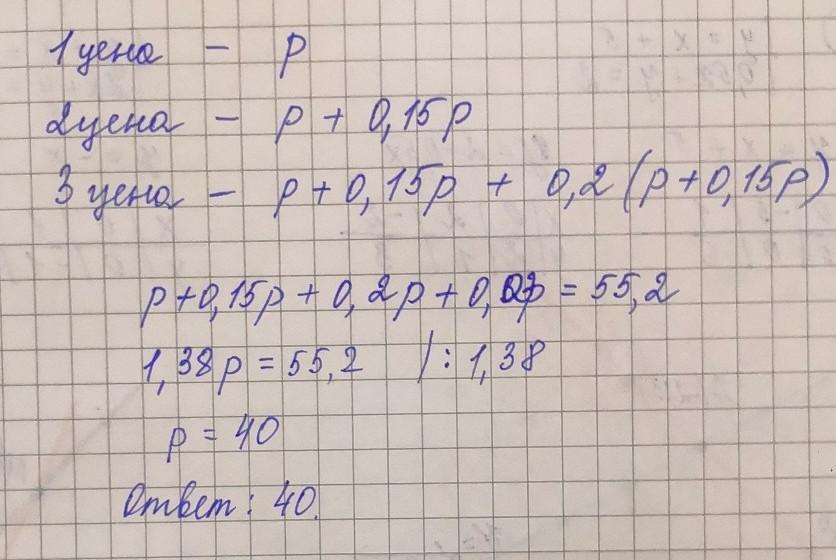 1 цена - p
2 цена - p + 0,15p
3 цена - p + 0,15p + 0,2 (p + 0,15p)
p + 0,15p + 0,2p + 0,03p = 55,2
1,38p = 55,2 / : 1,38
p = 40
Ответ: 40.